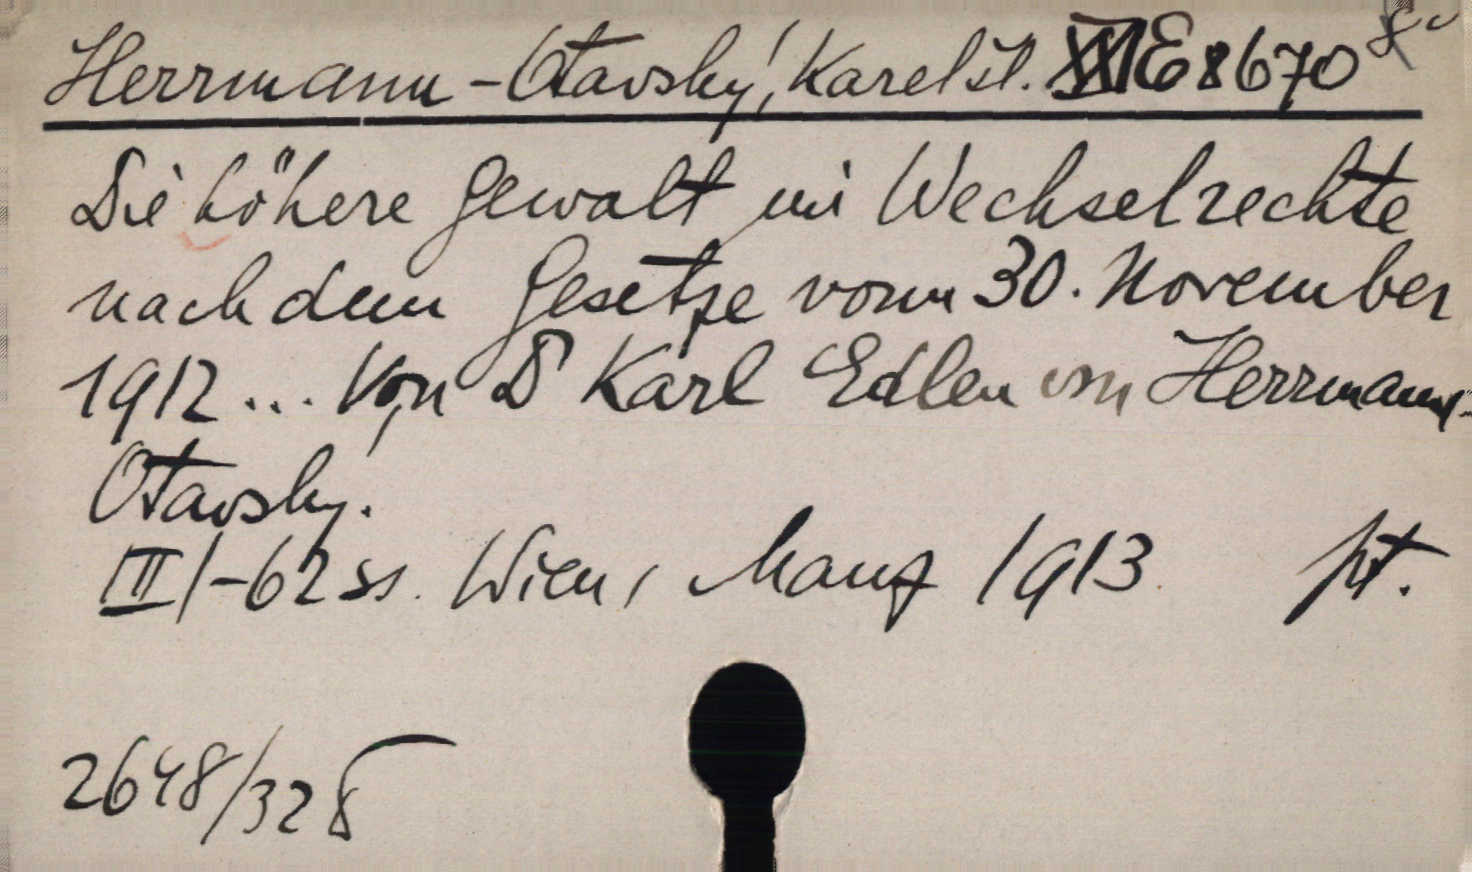 Herrmann-Otavský, Karel st. XVI E 8670 8°
Die höhere Gewalt im Wechselrechte
nach dem Gesetze vom 30. November
1912 ... Von Dr Karl Edlen von Herrmann-
Otavsky.
III 1-62 ss. Wien, Manz 1913. pt.
2648/328